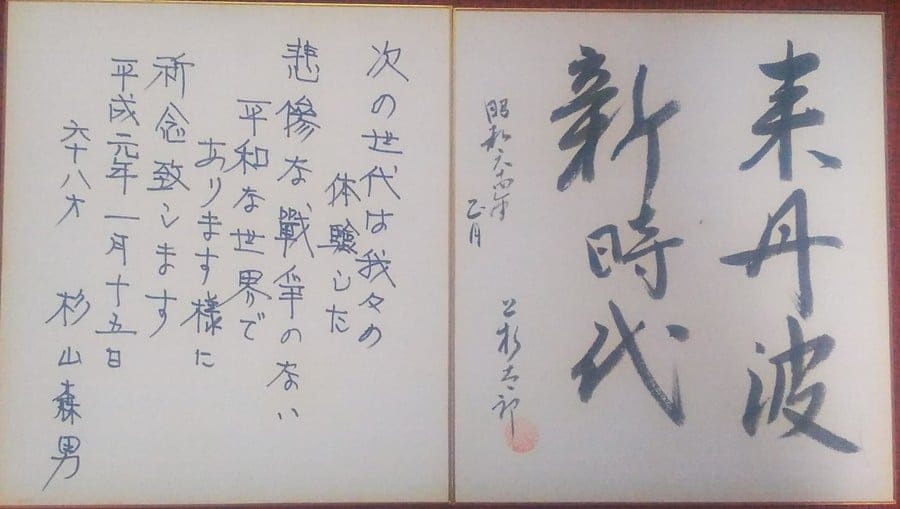 来丹波
新時代
昭和六十四年
正月
次の世代は我々の
体験した
悲惨な戰爭のない
平和な世界で
あります様に
祈念致します
平成元年一月十五日
六十八才 杉山森男